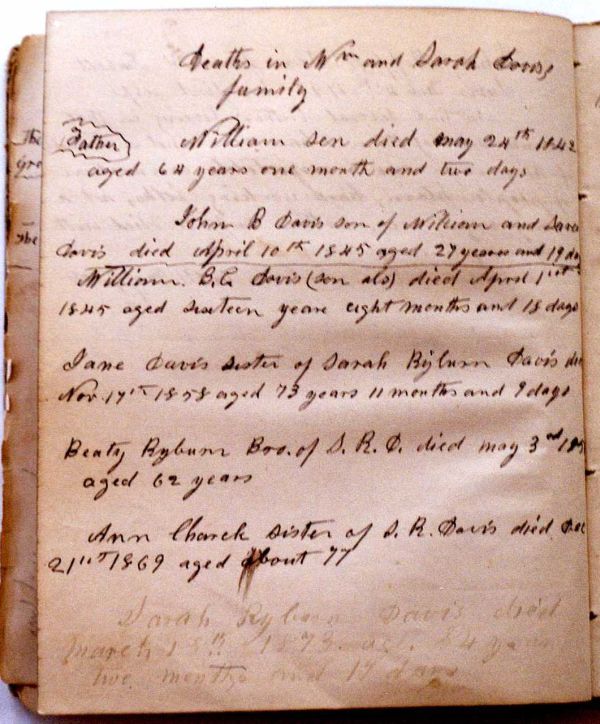 Deaths in Wm and Sarah Davis,
family
Father William sen died may 24th 1842
aged 64 years one month and two days
John B Davis son of William and Sara
Davis died April 10th 1845 aged 27 years and 19 da
William. B.C. Davis (son als) died Aprol 11th
1845 aged sixteen yeare eight months and 18 days
Jane Davis sister of Sarah Ryburn Davis die
Nov. 17th 1858 aged 73 years 11 months and 9 days
Beaty Ryburn Bro. of S. R. D. died may 3rd 18
aged 62 years
Ann sister of S. R. Davis died Dec
21st 1869 aged about 77
Sarah Ryburn Davis died
March 18th 1873. 84 year
two months and 17 days
the
Gre
the